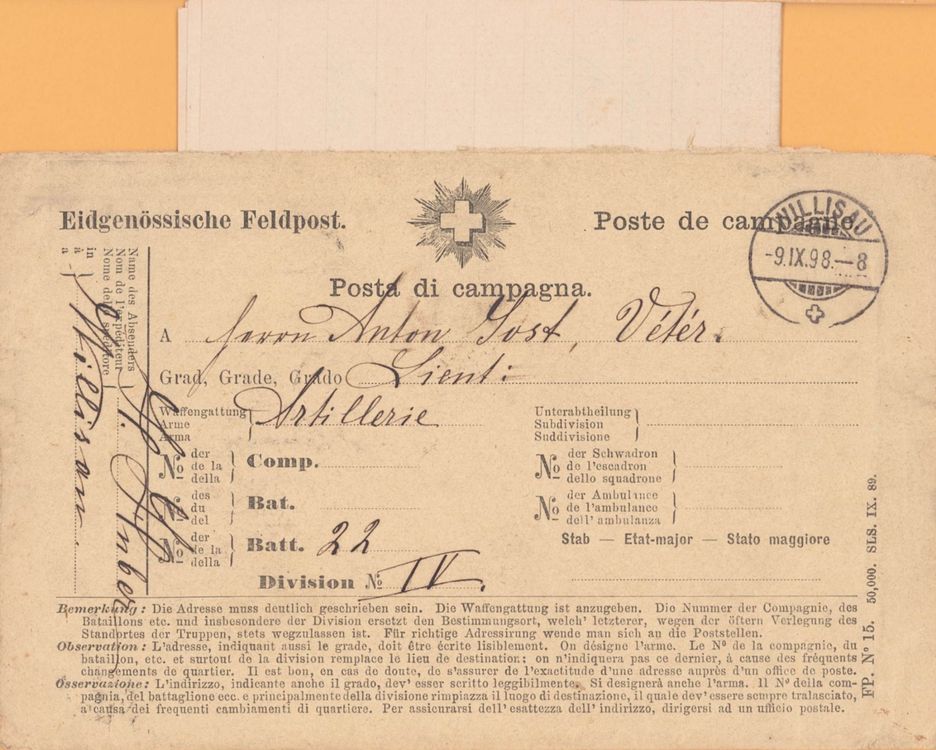 Eidgenössische Feldpost.
Poste de campagne.
WILLISAU
-9.IX.98.-8
Posta di campagna.
A Herrn Anton Jost, Vétér.
Grad, Grade, Grado Lieut:
Waffengattung
Arme
Arma
Artillerie
Unterabtheilung
Subdivision
Suddivisione
No der
de la
della
Comp.
No der Schwadron
de l'escadron
dello squadrone
No des
du
del
Bat.
No der Ambulance
de l'ambulance
dell' ambulanza
No der
de la
della
Batt. 22
Stab — Etat-major — Stato maggiore
Division No IV.
Name des Absenders
Nom de l'expéditeur
Nome del speditore
in
à
a
Willisau
Bemerkung: Die Adresse muss deutlich geschrieben sein. Die Waffengattung ist anzugeben. Die Nummer der Compagnie, des
Bataillons etc. und insbesondere der Division ersetzt den Bestimmungsort, welch' letzterer, wegen der öftern Verlegung des
Standortes der Truppen, stets wegzulassen ist. Für richtige Adressirung wende man sich an die Poststellen.
Observation: L'adresse, indiquant aussi le grade, doit être écrite lisiblement. On désigne l'arme. Le No de la compagnie, du
bataillon, etc. et surtout de la division remplace le lieu de destination: on n'indiquera pas ce dernier, à cause des fréquents
changements de quartier. Il est bon, en cas de doute, de s'assurer de l'exactitude d'une adresse auprès d'un office de poste.
Osservazione: L'indirizzo, indicante anche il grado, dev' esser scritto leggibilmente. Si designerà anche l'arma. Il No della com-
pagnia, del battaglione ecc. e principalmente della divisione rimpiazza il luogo di destinazione, il quale dev' essere sempre tralasciato,
a causa dei frequenti cambiamenti di quartiere. Per assicurarsi dell' esattezza dell' indirizzo, dirigersi ad un ufficio postale.
FP. No 15. 50,000. SLS. IX. 89.